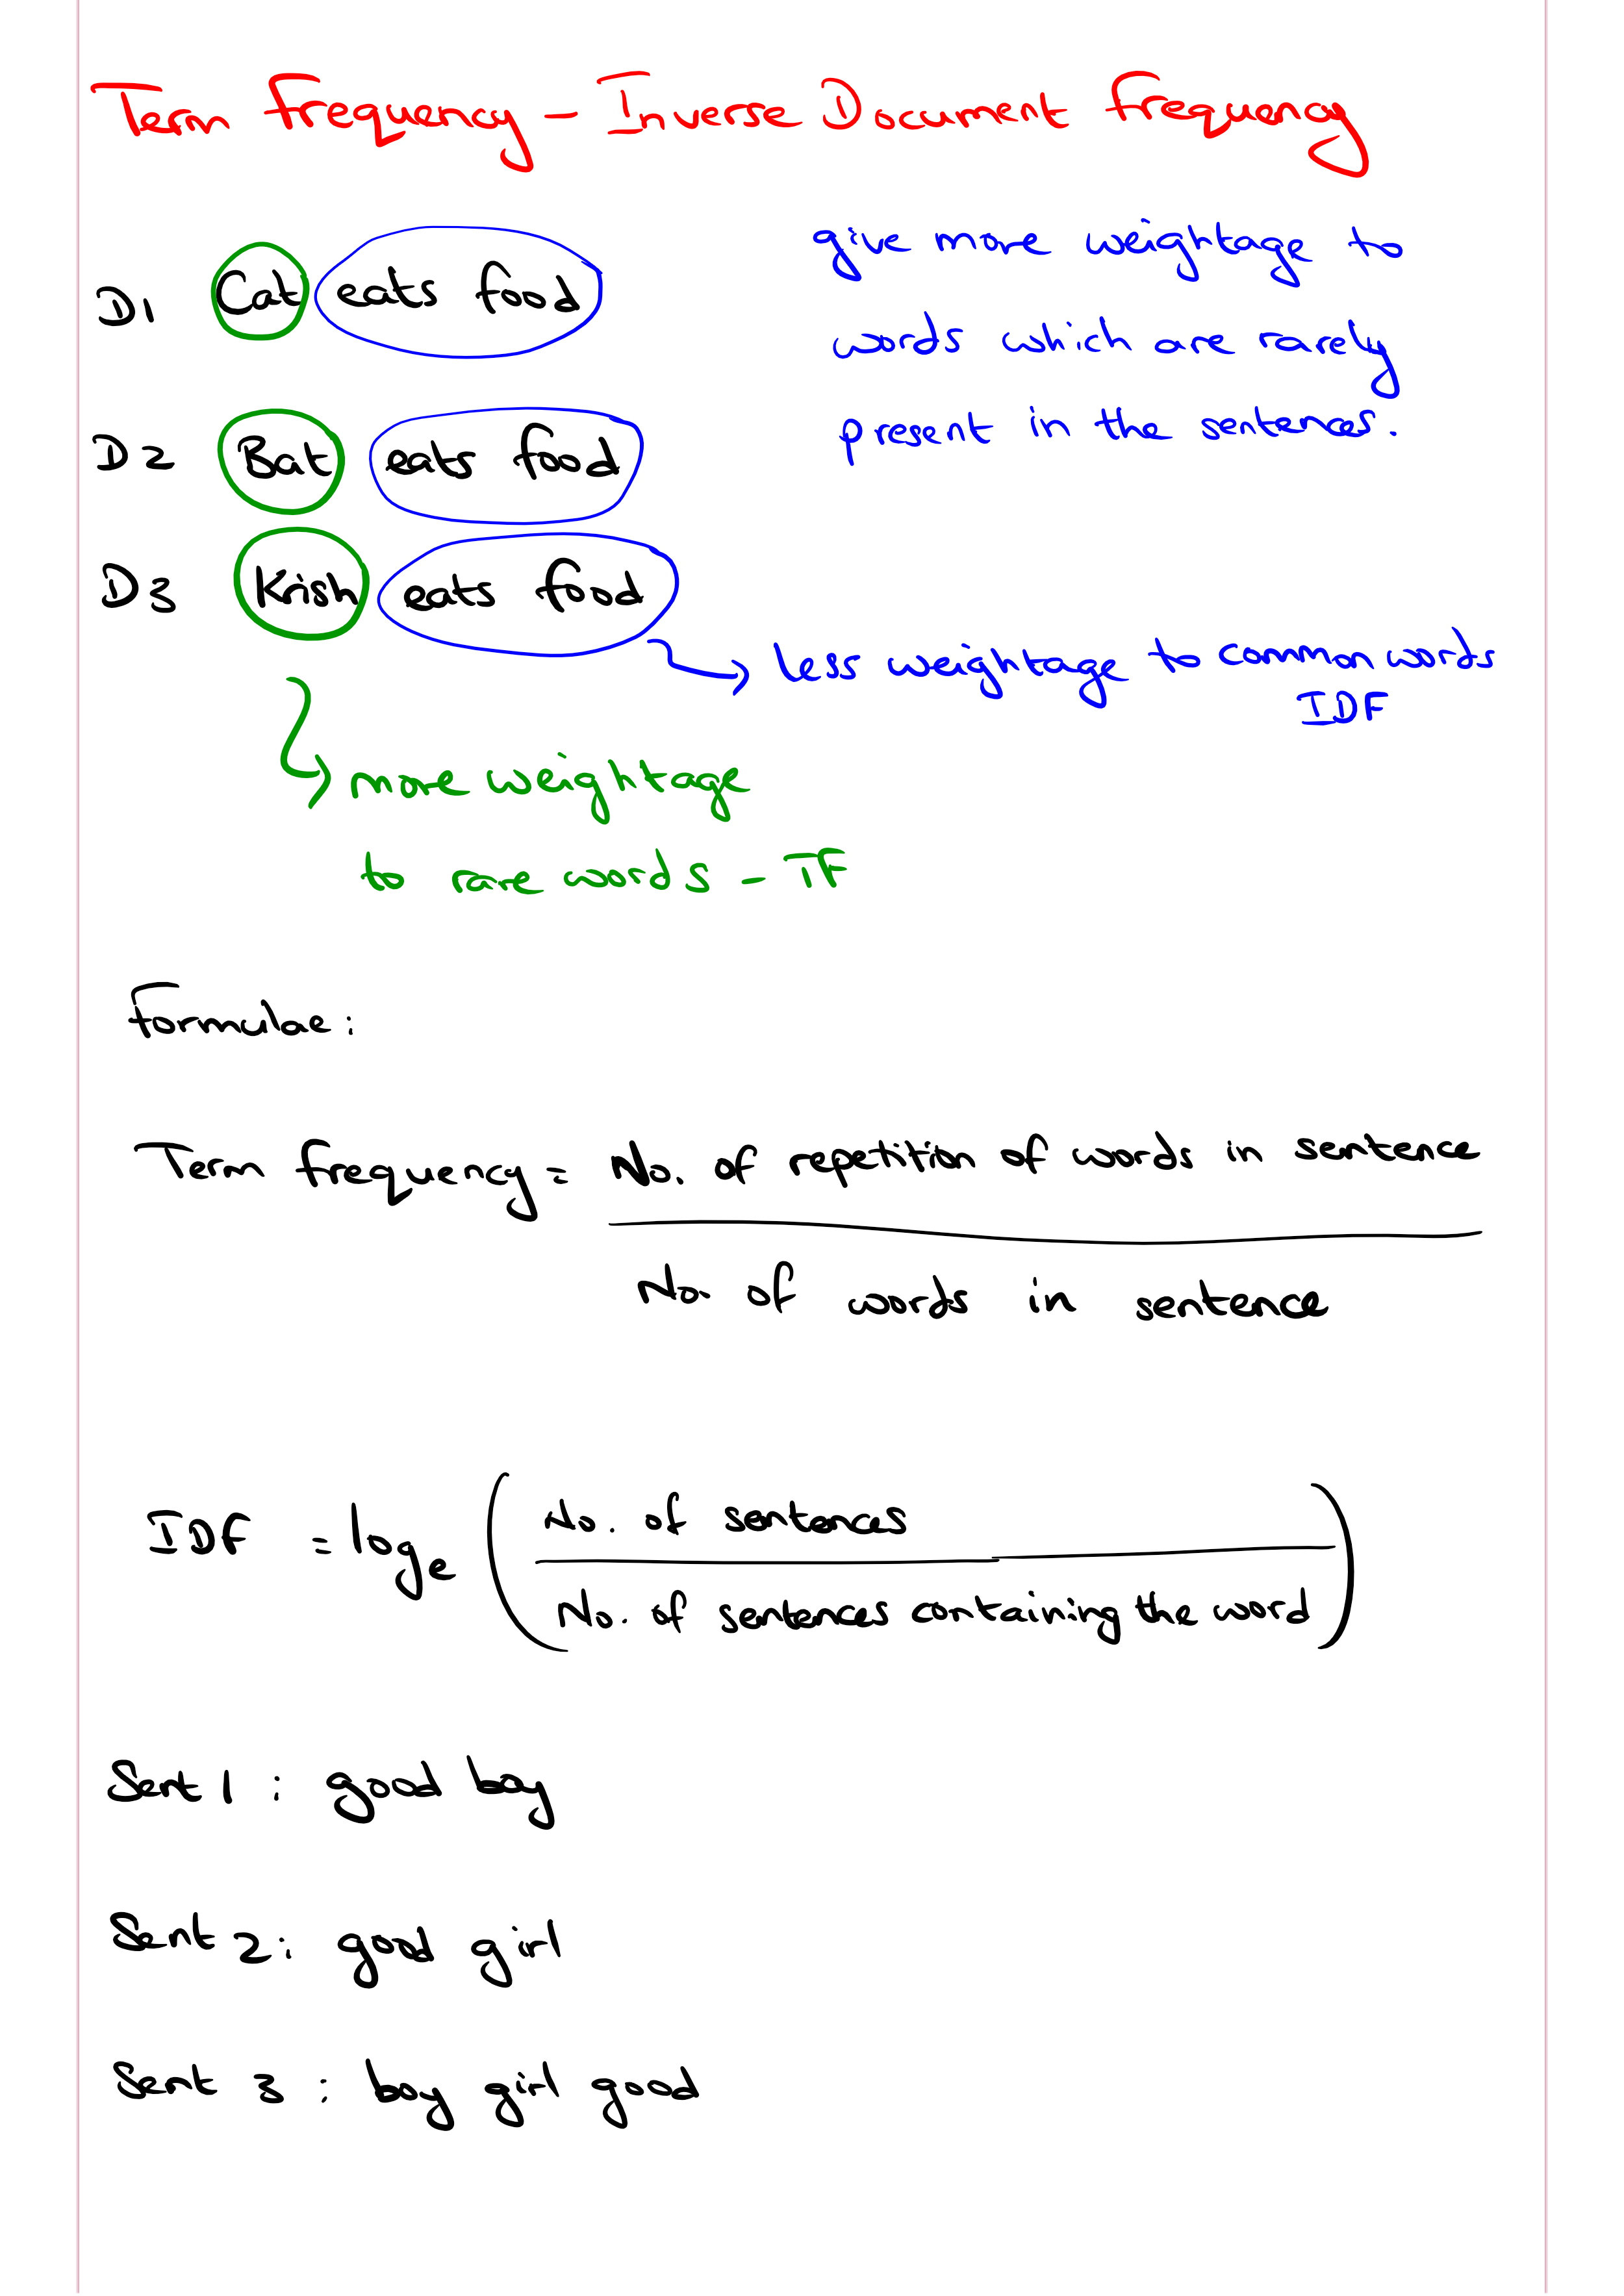 Term Frequency - Inverse Document Frequency
D1 Cat eats food
give more weightage to
words which are rarely
present in the sentences.
D2 Bat eats food
D3 Krish eats food
less weightage to common words
IDF
more weightage
to rare words - TF
Formulae:
Term frequency = No. of repetition of words in sentence
No. of words in sentence
IDF = loge ( No. of sentences
No. of sentences containing the word )
Sent 1 : good boy
Sent 2 : good girl
Sent 3 : boy girl good